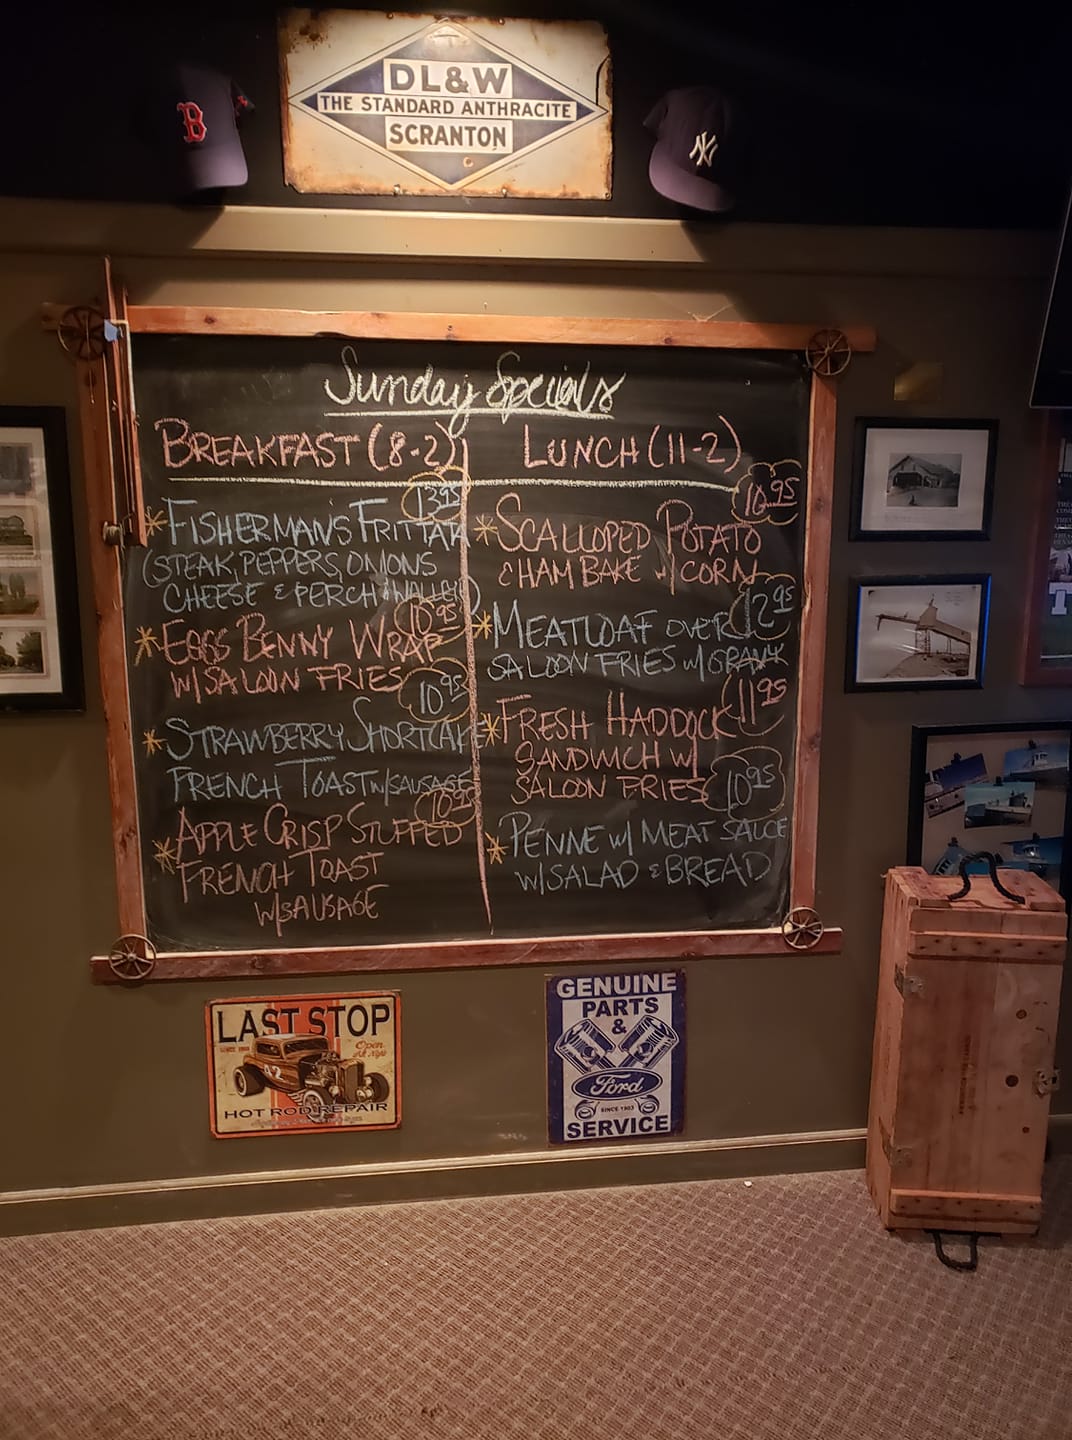 DL&W
THE STANDARD ANTHRACITE
SCRANTON
B
NY
Sunday Specials
BREAKFAST (8-2)
13.95
* FISHERMAN'S FRITTATA
(STEAK, PEPPERS, ONIONS
CHEESE & PERCH & WALLEYE)
10.95
* EGGS BENNY WRAP
W/SALOON FRIES
10.95
* STRAWBERRY SHORTCAKE
FRENCH TOAST W/SAUSAGE
10.95
* APPLE CRISP STUFFED
FRENCH TOAST
W/SAUSAGE
LUNCH (11-2)
10.95
* SCALLOPED POTATO
& HAM BAKE W/ CORN
12.95
* MEATLOAF OVER
SALOON FRIES W/ GRAVY
11.95
* FRESH HADDOCK
SANDWICH W/
SALOON FRIES
10.95
* PENNE W/ MEAT SAUCE
W/SALAD & BREAD
LAST STOP
Open
All Nite
42
HOT ROD REPAIR
GENUINE
PARTS
&
Ford
SINCE 1903
SERVICE